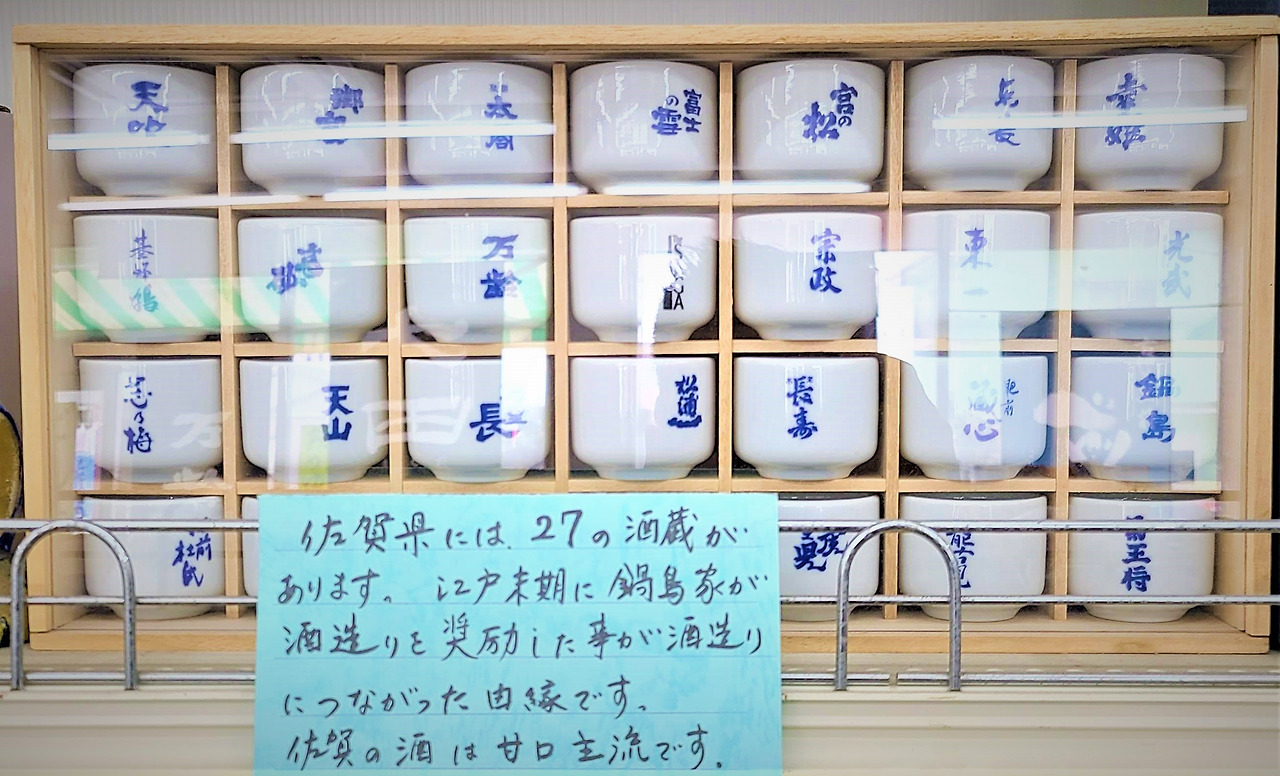 天吹
太閤
富士の雪
宮の松
幸姫
基峰鶴
万齢
宗政
東一
光武
忍乃梅
天山
長
松浦一
長寿
肥前蔵心
鍋島
前杜氏
能古見
王将
佐賀県には、27の酒蔵が
あります。江戸末期に鍋島家が
酒造りを奨励した事が酒造り
につながった由縁です。
佐賀の酒は甘口主流です。